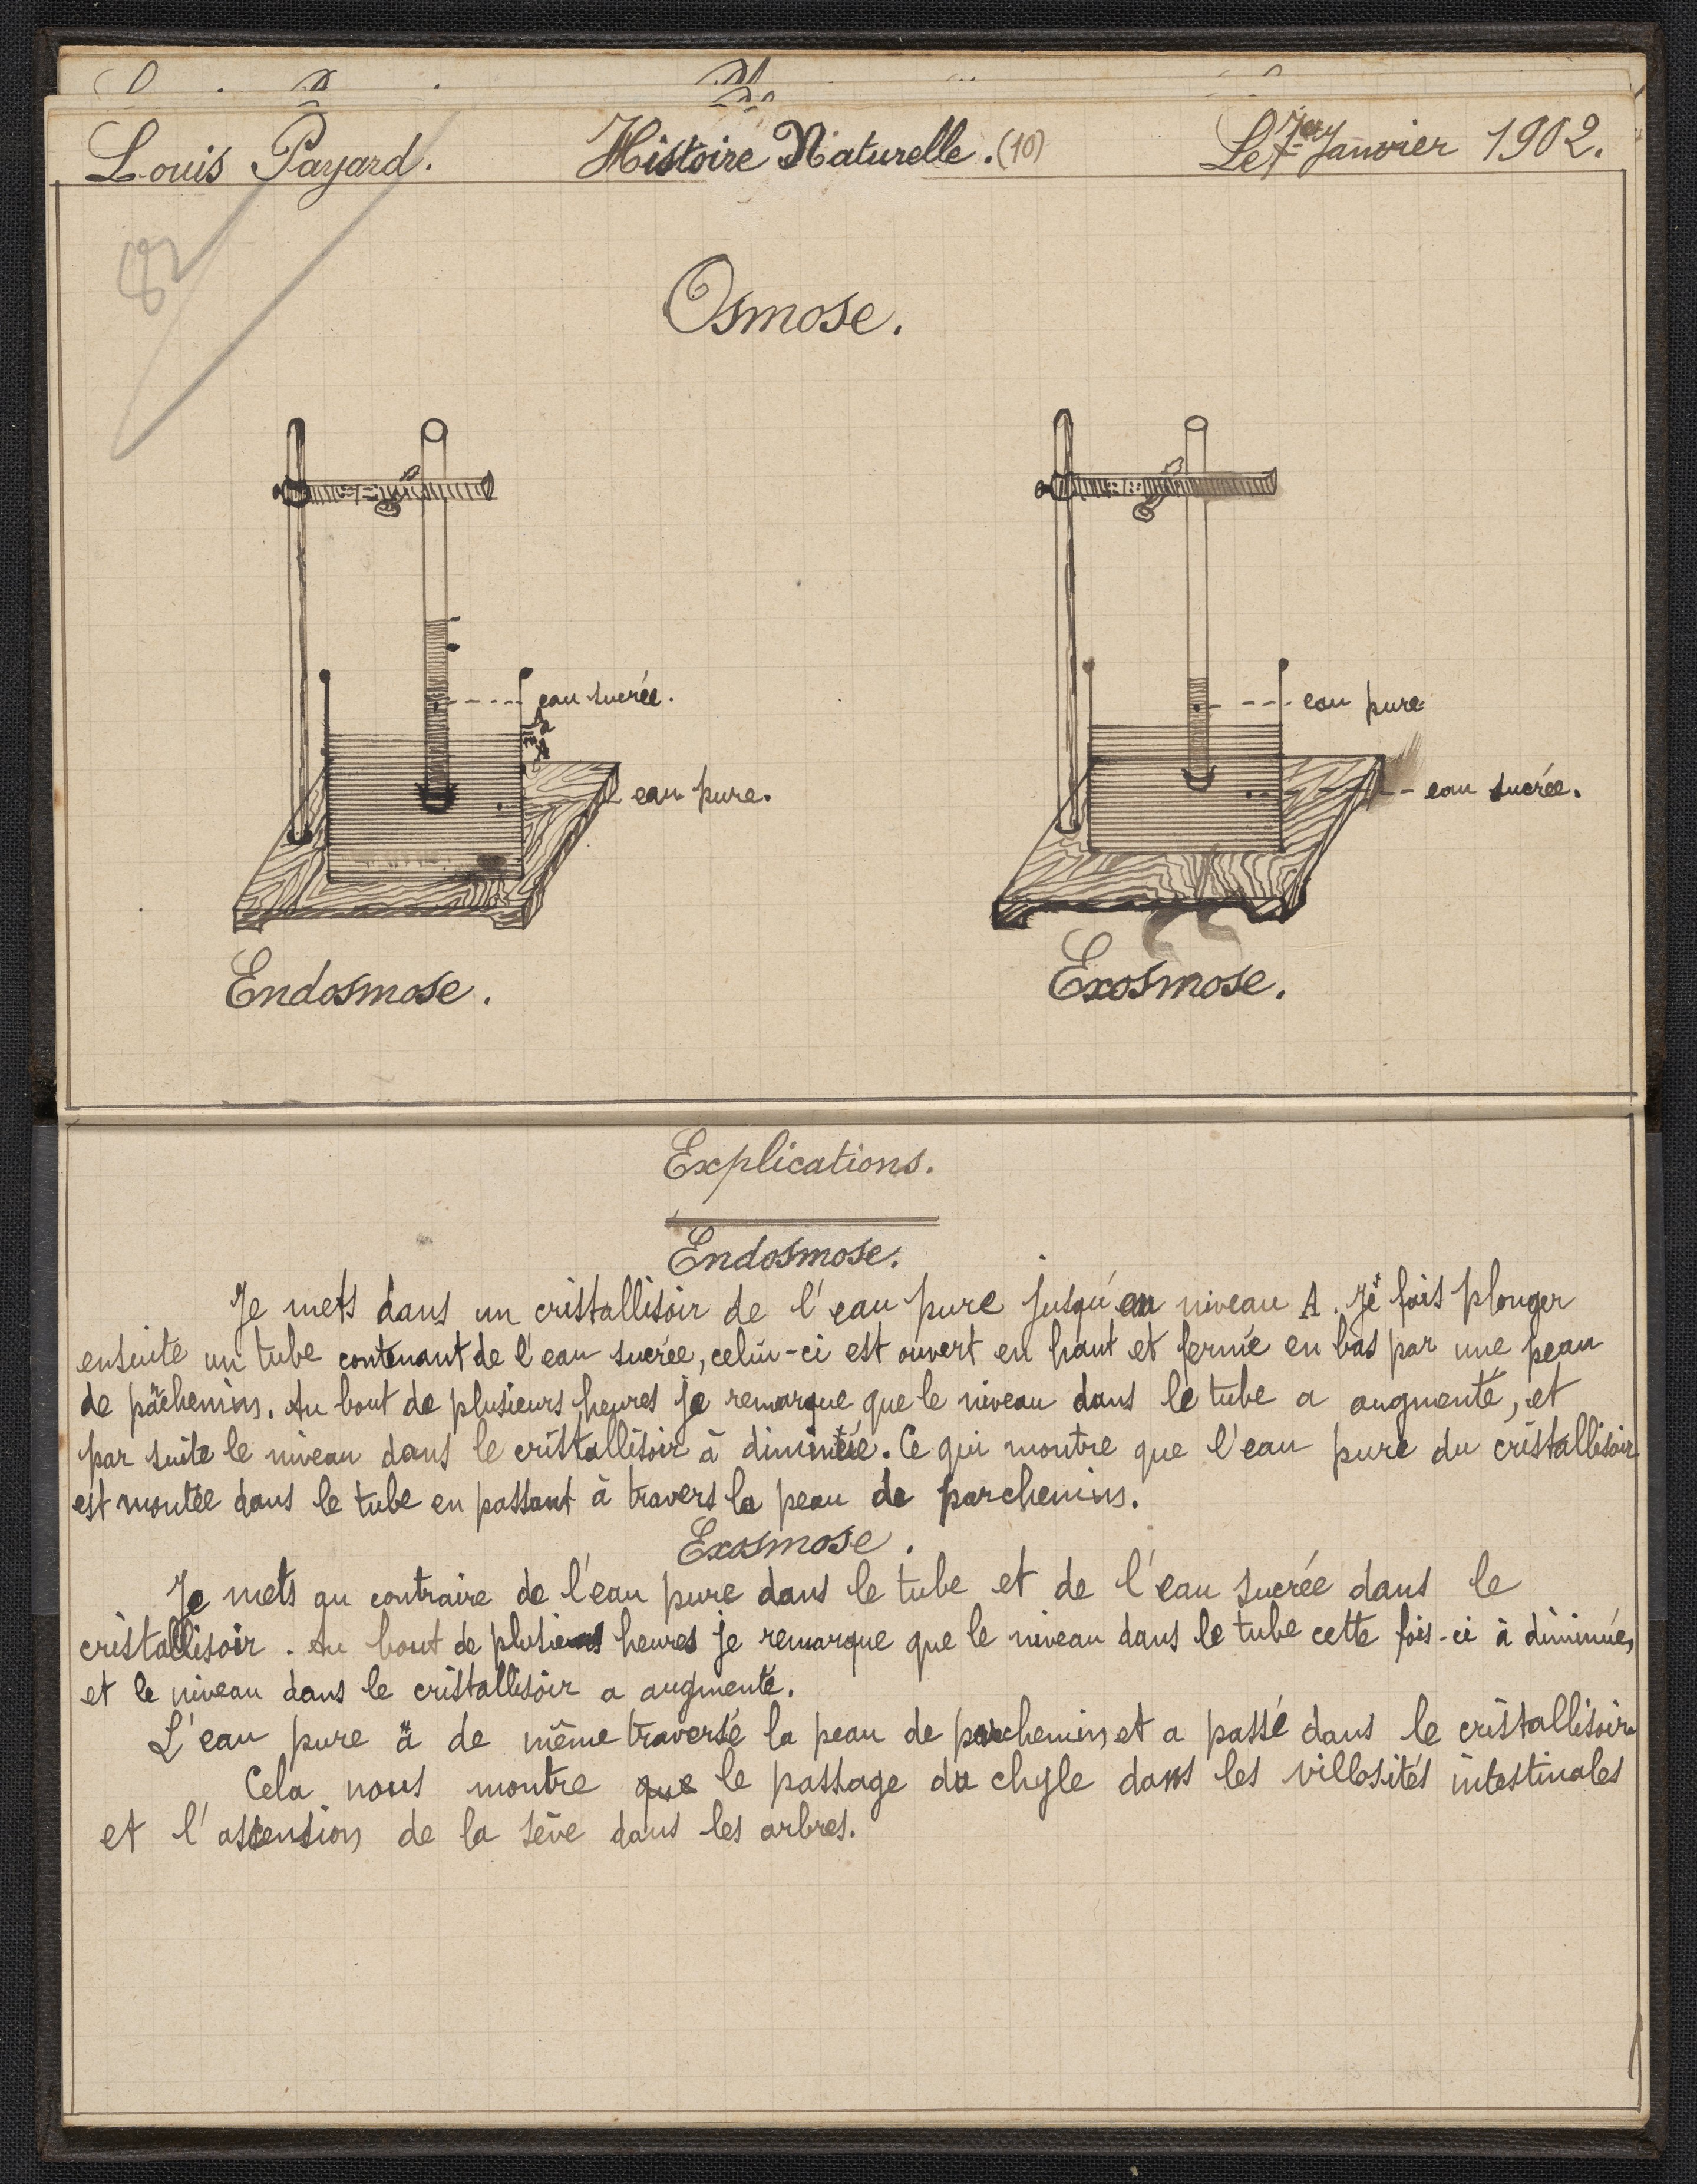 Louis Payard. Histoire Naturelle. (10) Le Janvier 1902.
Osmose.
eau sucrée. eau pure
A
eau pure. eau sucrée.
Endosmose. Exosmose.
Explications.
Endosmose.
Je mets dans un cristallisoir de l'eau pure jusqu'au niveau A. Je fais plonger
ensuite un tube contenant de l'eau sucrée, celui-ci est ouvert en haut et fermé en bas par une peau
de parchemin. Au bout de plusieurs heures je remarque que le niveau dans le tube a augmenté, et
par suite le niveau dans le cristallisoir à diminuée. Ce qui montre que l'eau pure du cristallisoir
est montée dans le tube en passant à travers la peau de parchemin.
Exosmose.
Je mets au contraire de l'eau pure dans le tube et de l'eau sucrée dans le
cristallisoir. Au bout de plusieurs heures je remarque que le niveau dans le tube cette fois-ci à diminué,
et le niveau dans le cristallisoir a augmenté.
L'eau pure a de même traversé la peau de parchemin et a passé dans le cristallisoir
Cela nous montre que le passage du chyle dans les villosités intestinales
et l'ascension de la sève dans les arbres.